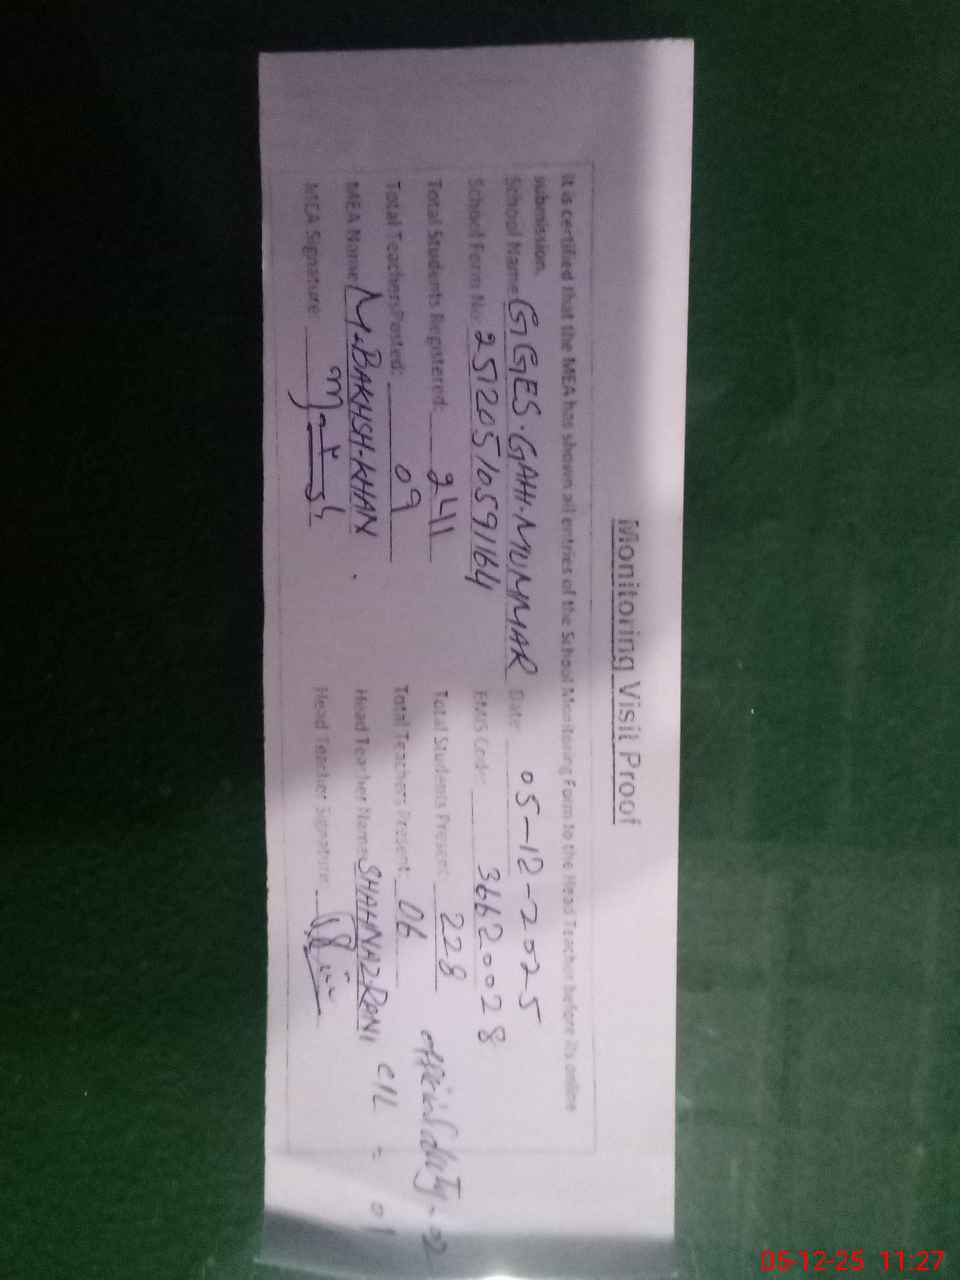 Monitoring Visit Proof
It is certified that the MEA has shown all entries of the School Monitoring Form to the Head Teacher before its online
submission.
School Name: GGES.GAHI.MUMMAR Date: 05-12-2025
School Form No: 25120510591164 EMIS Code: 36620028
Total Students Registered: 241 Total Students Present: 228
Total Teachers Posted: 09 Total Teachers Present: 06 official duty - 02
MEA Name: M.BAKHSH.KHAN Head Teacher Name: SHAHNAZ RANI C/L = 01
MEA Signature: Head Teacher Signature:
05-12-25 11:27